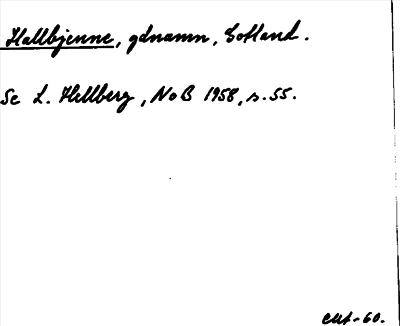 Hallbjenne, gdnamn, Gotland.
Se L. Hellberg, NoB 1958, s. 55.